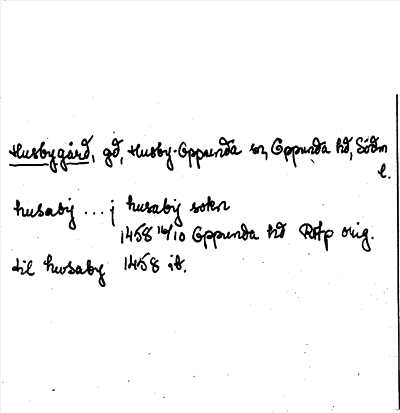 Husbygård, gd, Husby-Oppunda sn, Oppunda hd, Södm
l.
husaby ... j husaby sokn
1458 16/10 Oppunda hd RAp orig.
til husaby 1458 ib.